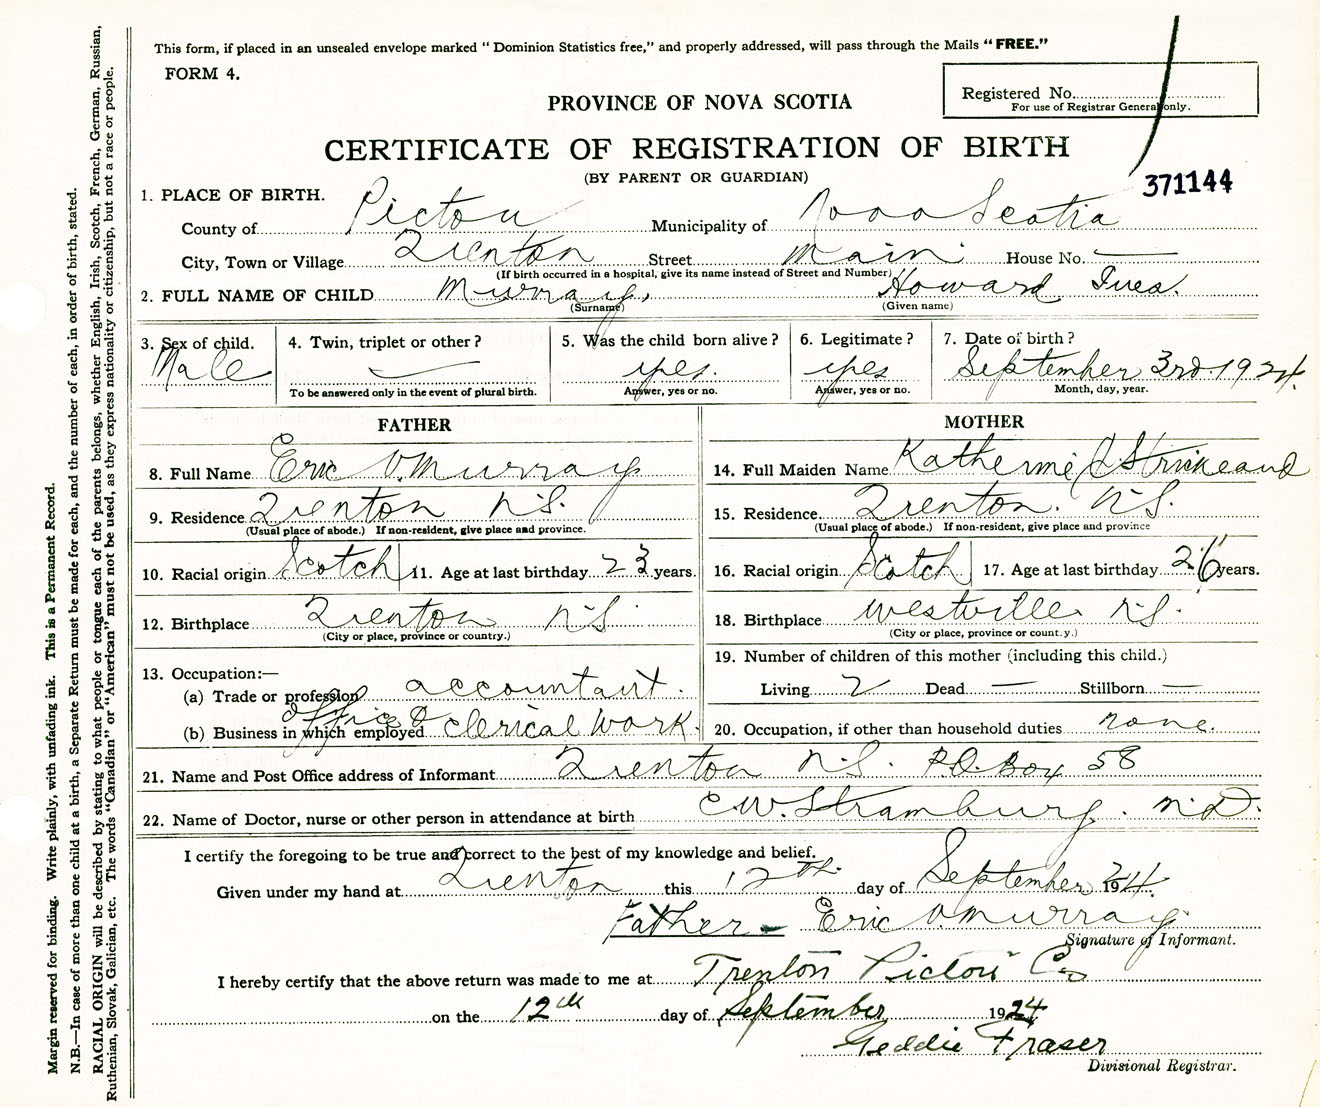 This form, if placed in an unsealed envelope marked "Dominion Statistics free," and properly addressed, will pass through the Mails "FREE."
FORM 4.
Registered No.
For use of Registrar General only.
PROVINCE OF NOVA SCOTIA
CERTIFICATE OF REGISTRATION OF BIRTH
(BY PARENT OR GUARDIAN)
371144
1. PLACE OF BIRTH.
County of Pictou Municipality of Nova Scotia
City, Town or Village Trenton Street Main House No. —
(If birth occurred in a hospital, give its name instead of Street and Number)
2. FULL NAME OF CHILD Murray, Howard Ives.
(Surname) (Given name)
3. Sex of child. Male
4. Twin, triplet or other? —
To be answered only in the event of plural birth.
5. Was the child born alive? yes.
Answer, yes or no.
6. Legitimate? yes
Answer, yes or no.
7. Date of birth? September 3rd 1924.
Month, day, year.
FATHER
8. Full Name Eric V. Murray
9. Residence Trenton N.S.
(Usual place of abode.) If non-resident, give place and province.
10. Racial origin Scotch 11. Age at last birthday 23 years.
12. Birthplace Trenton N.S.
(City or place, province or country.)
13. Occupation:—
(a) Trade or profession accountant.
(b) Business in which employed office & clerical work.
MOTHER
14. Full Maiden Name Katherine Strickland
15. Residence. Trenton. N.S.
(Usual place of abode.) If non-resident, give place and province
16. Racial origin Scotch 17. Age at last birthday 26 years.
18. Birthplace Westville N.S.
(City or place, province or country.)
19. Number of children of this mother (including this child.)
Living 2 Dead — Stillborn —
20. Occupation, if other than household duties none.
21. Name and Post Office address of Informant Trenton N.S. P.O. Box 58
22. Name of Doctor, nurse or other person in attendance at birth C.W. M.D.
I certify the foregoing to be true and correct to the best of my knowledge and belief.
Given under my hand at Trenton this 12th day of September 1924.
Father - Eric V. Murray
Signature of Informant.
I hereby certify that the above return was made to me at Trenton Pictou Co
on the 12th day of September 1924
Geddie Fraser
Divisional Registrar.
Margin reserved for binding. Write plainly, with unfading ink. This is a Permanent Record.
N.B.—In case of more than one child at a birth, a Separate Return must be made for each, and the number of each, in order of birth, stated.
RACIAL ORIGIN will be described by stating to what people or tongue each of the parents belongs, whether English, Irish, Scotch, French, German, Russian,
Ruthenian, Slovak, Galician, etc. The words "Canadian" or "American" must not be used, as they express nationality or citizenship, but not a race or people.